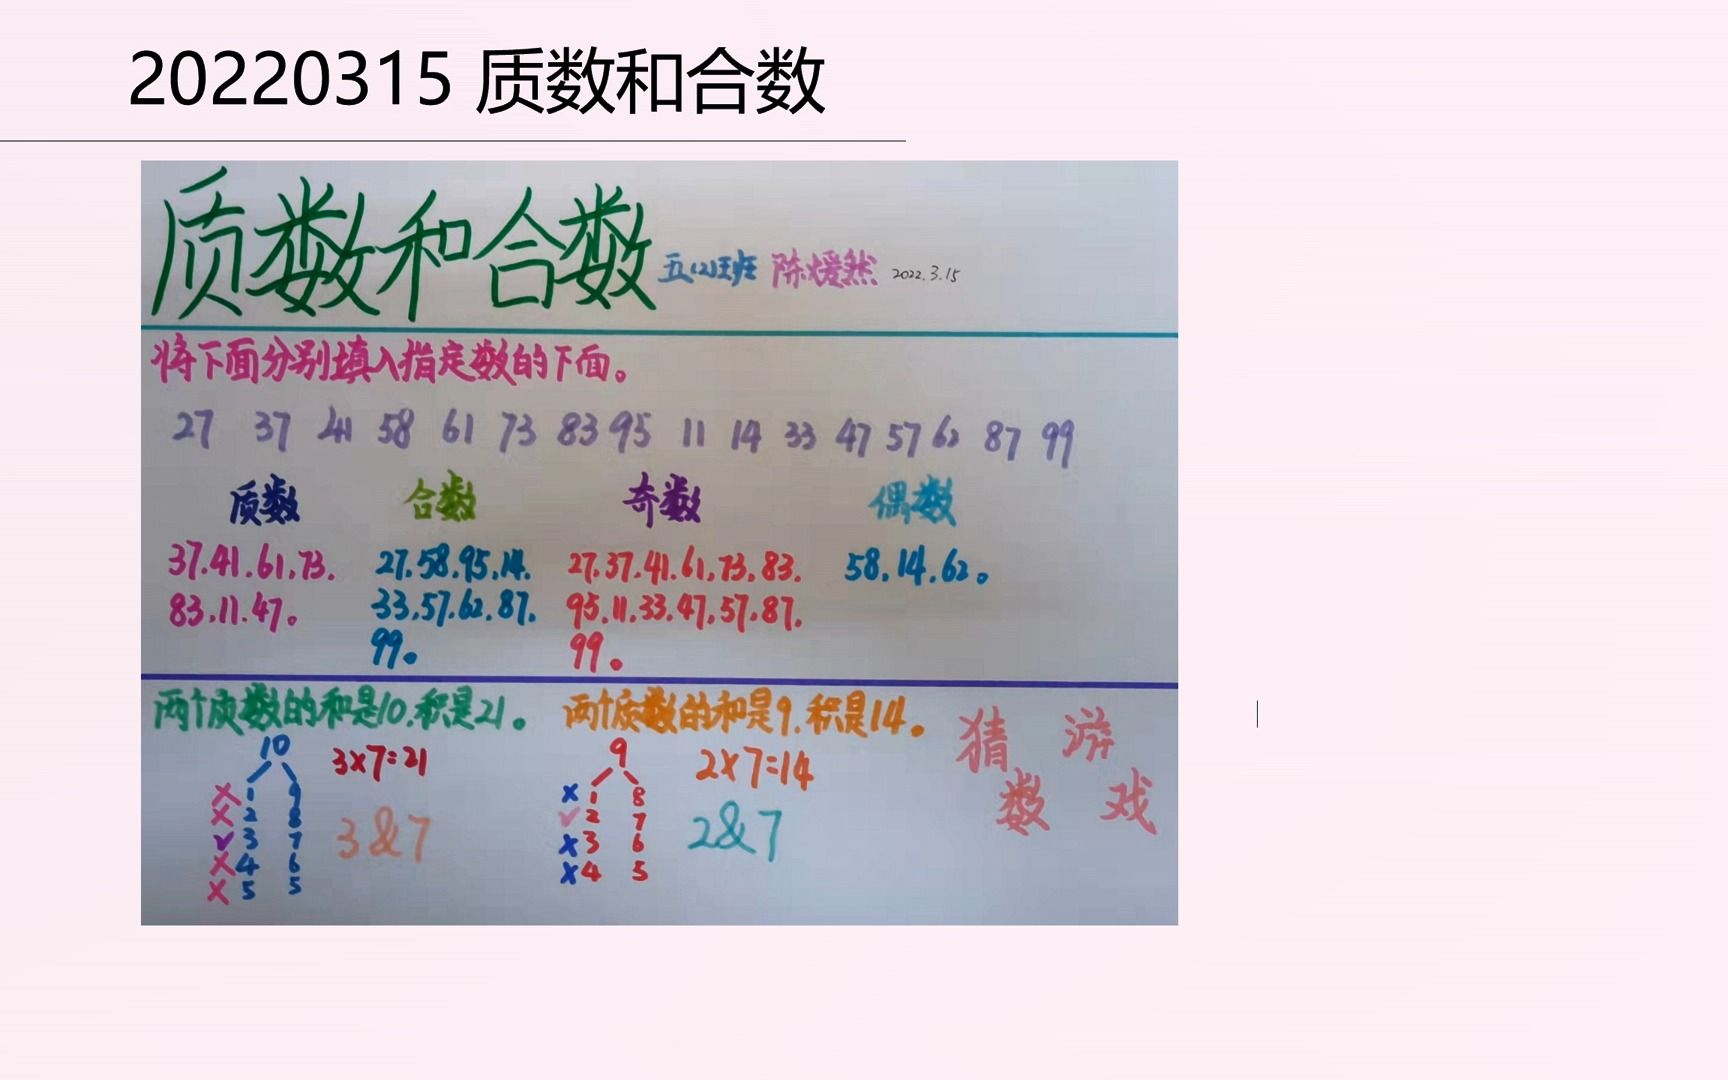 20220315 质数和合数
质数和合数 五(2)班 陈媛然 2022.3.15
将下面分别填入指定数的下面。
27 37 41 58 61 73 83 95 11 14 33 47 57 62 87 99
质数 合数 奇数 偶数
37.41.61.73. 27.58.95.14. 27.37.41.61.73.83. 58.14.62。
83.11.47。 33.57.62.87. 95.11.33.47.57.87.
99。 99。
两个质数的和是10.积是21。 两个质数的和是9.积是14。
10 3×7=21 9 2×7=14 猜 游
× 1 9 × 1 8 数 戏
× 2 8 ✓ 2 7
✓ 3 7 3&7 × 3 6 2&7
× 4 6 × 4 5
× 5 5